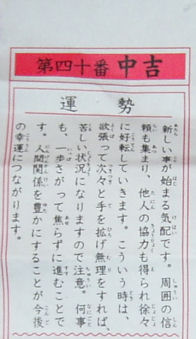 第四十番 中吉
運勢
新しい事が始まる気配です。周囲の信
頼も集まり、他人の協力も得られ徐々
に好転していきます。こういう時は、
欲張って次々と手を拡げ無理をすれば、
苦しい状況になりますので注意。何事
も、一歩さがって焦らずに進むことで
す。人間関係を豊かにすることが今後
の幸運につながります。